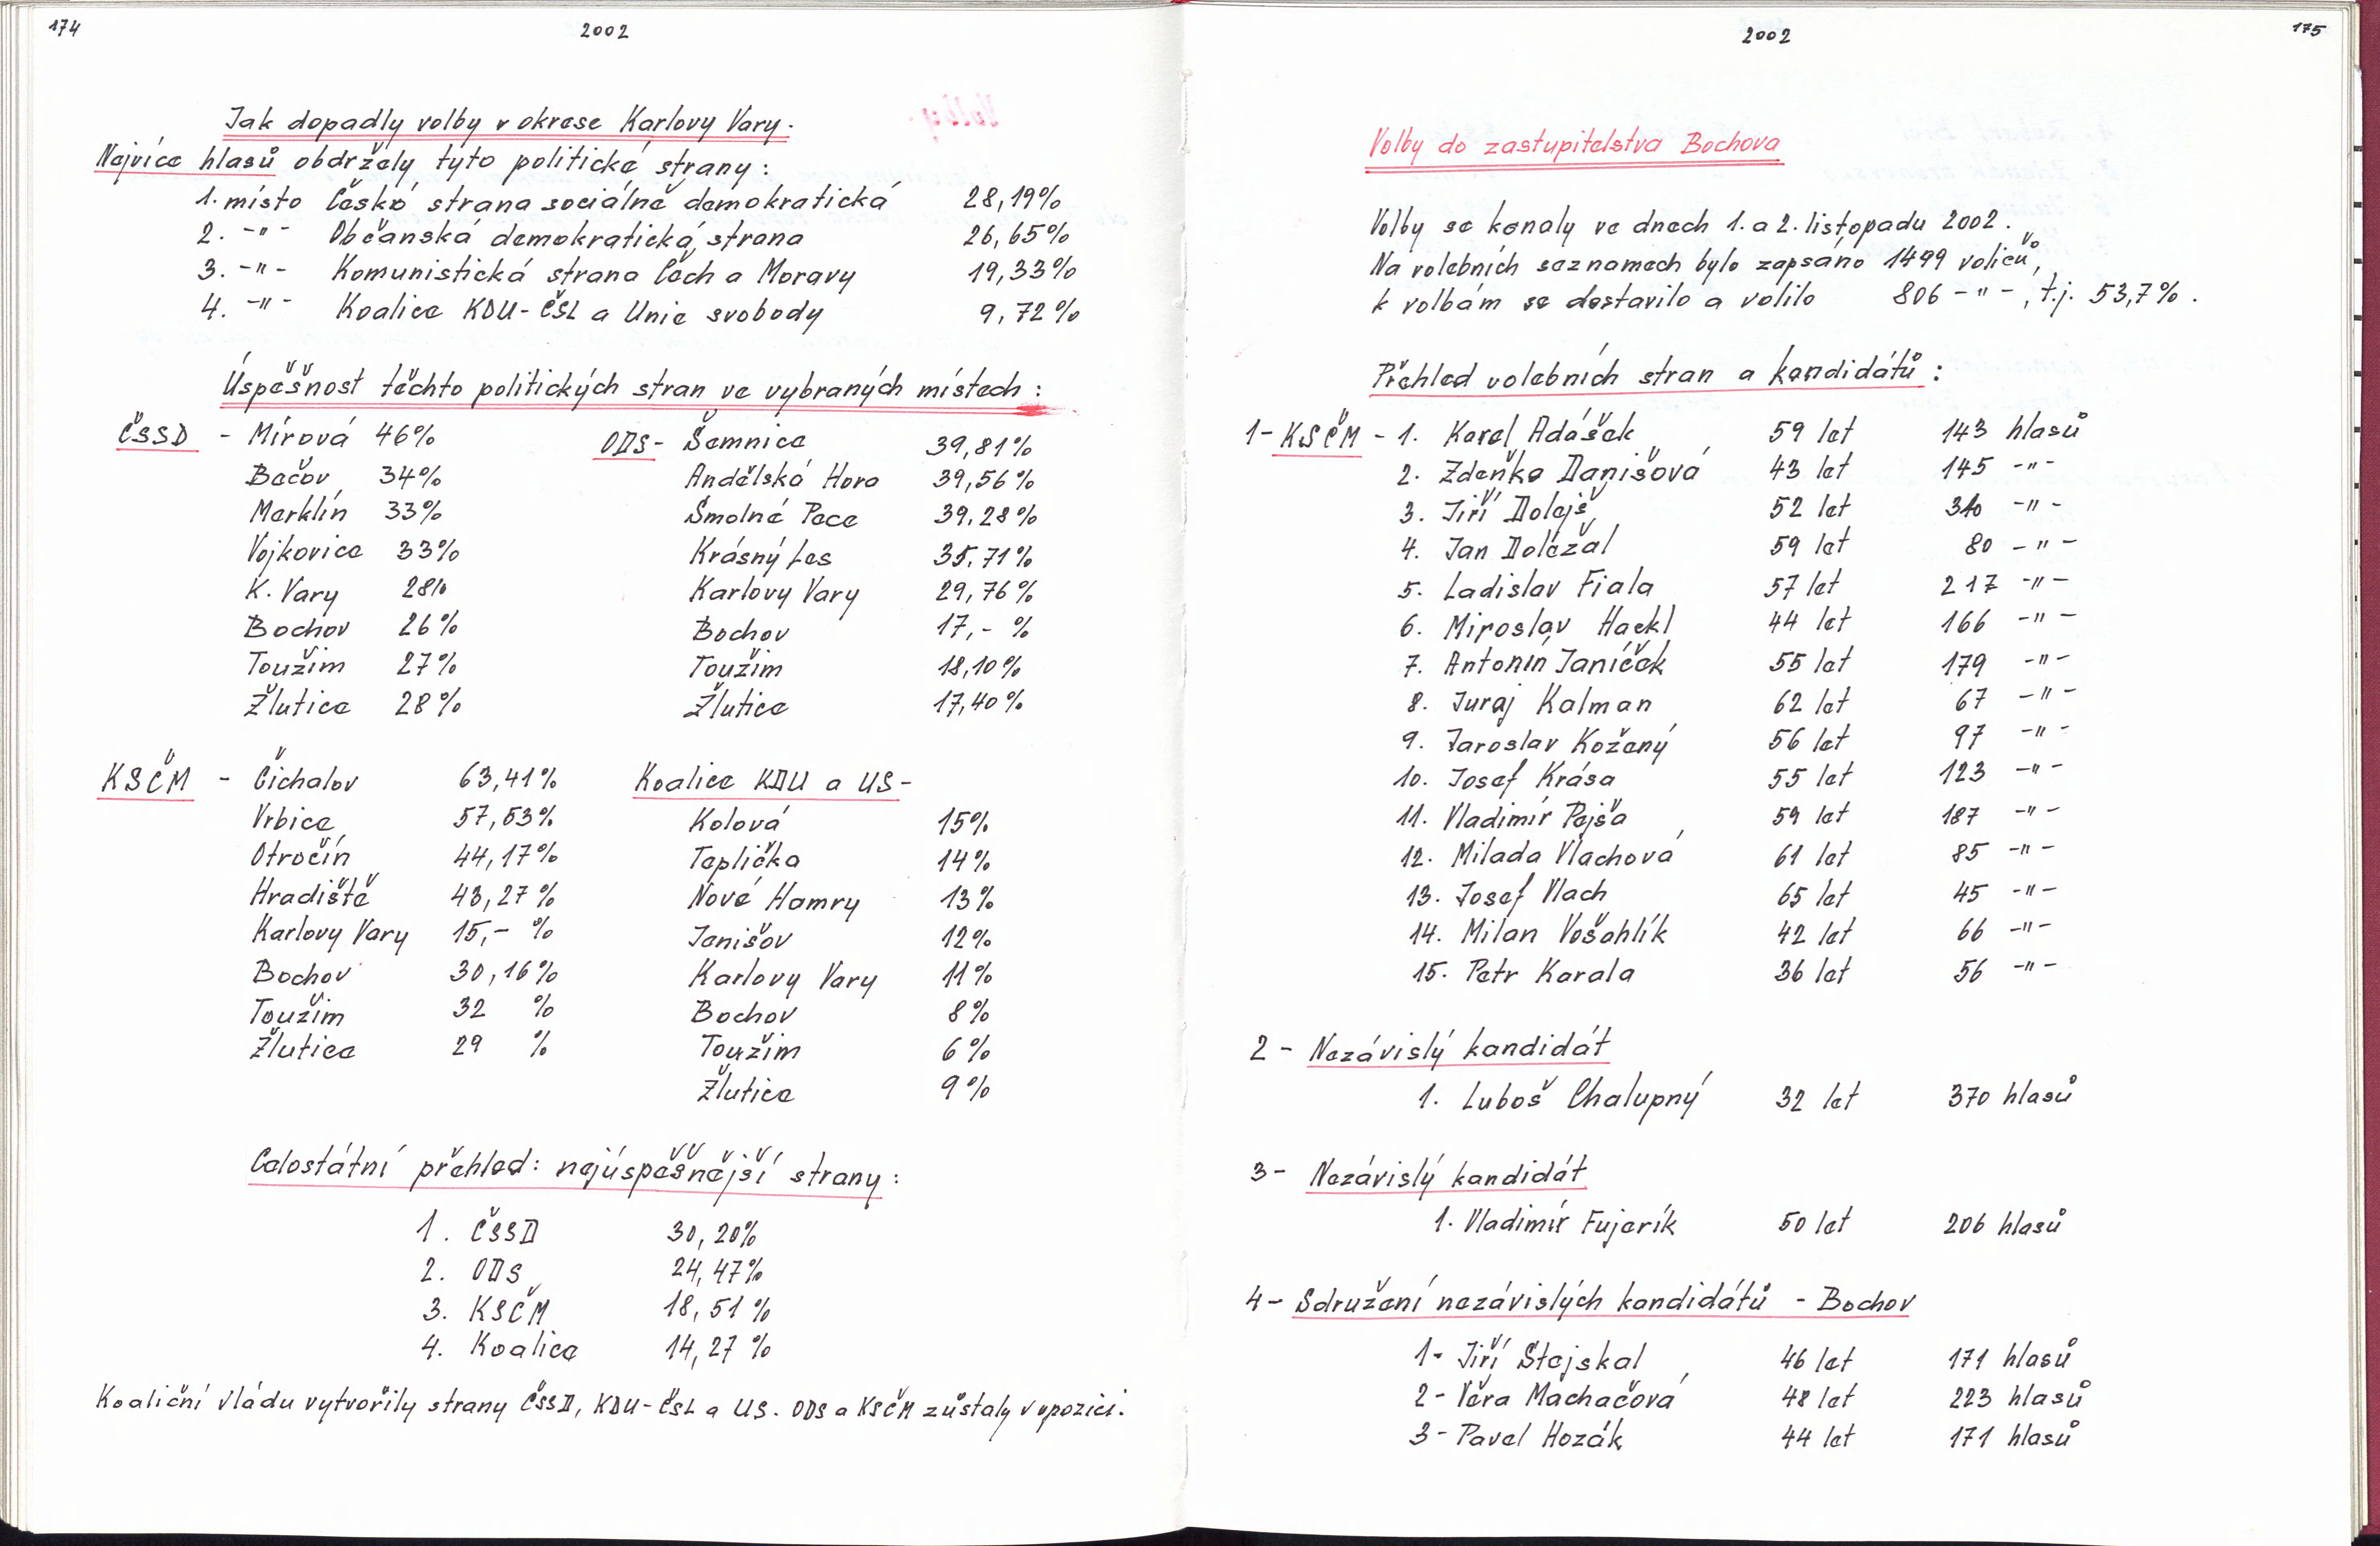 174
2002
Jak dopadly volby v okrese Karlovy Vary.
Nejvíce hlasů obdržely tyto politické strany:
1. místo Česká strana sociálně demokratická 28,19%
2. -"- Občanská demokratická strana 26,65%
3. -"- Komunistická strana Čech a Moravy 19,33%
4. -"- Koalice KDU-ČSL a Unie svobody 9,72%
Úspěšnost těchto politických stran ve vybraných místech:
ČSSD - Mírová 46%
Bečov 34%
Merklín 33%
Vojkovice 33%
K. Vary 28%
Bochov 26%
Toužim 27%
Žlutice 28%
ODS- Šemnice 39,81%
Andělská Hora 39,56%
Smolné Pece 39,28%
Krásný Les 35,71%
Karlovy Vary 29,76%
Bochov 17,- %
Toužim 18,10%
Žlutice 17,40%
KSČM - Čichalov 63,41%
Vrbice 57,53%
Otročín 44,17%
Hradiště 43,27%
Karlovy Vary 15,- %
Bochov 30,16%
Toužim 32 %
Žlutice 29 %
Koalice KDU a US-
Kolová 15%
Teplička 14%
Nové Hamry 13%
Jenišov 12%
Karlovy Vary 11%
Bochov 8%
Toužim 6%
Žlutice 9%
Celostátní přehled: nejúspěšnější strany:
1. ČSSD 30,20%
2. ODS 24,47%
3. KSČM 18,51%
4. Koalice 14,27%
Koaliční vládu vytvořily strany ČSSD, KDU-ČSL a US. ODS a KSČM zůstaly v opozici.
2002
175
Volby do zastupitelstva Bochova
Volby se konaly ve dnech 1. a 2. listopadu 2002.
Na volebních seznamech bylo zapsáno 1499 voličů,
k volbám se dostavilo a volilo 806 -"-, t.j. 53,7%.
Přehled volebních stran a kandidátů:
1- KSČM - 1. Karel Adášek 59 let 143 hlasů
2. Zdeňka Danišová 43 let 145 -"-
3. Jiří Dolejš 52 let 310 -"-
4. Jan Doležal 59 let 80 -"-
5. Ladislav Fiala 57 let 217 -"-
6. Miroslav Hackl 44 let 166 -"-
7. Antonín Janíček 55 let 179 -"-
8. Juraj Kalman 62 let 67 -"-
9. Jaroslav Kožený 56 let 97 -"-
10. Josef Krása 55 let 123 -"-
11. Vladimír Pejša 59 let 187 -"-
12. Milada Vlachová 61 let 85 -"-
13. Josef Vlach 65 let 45 -"-
14. Milan Vošahlík 42 let 66 -"-
15. Petr Karala 36 let 56 -"-
2 - Nezávislý kandidát
1. Luboš Chalupný 32 let 370 hlasů
3- Nezávislý kandidát
1. Vladimír Fujerík 50 let 206 hlasů
4- Sdružení nezávislých kandidátů - Bochov
1- Jiří Stejskal 46 let 171 hlasů
2- Věra Machačová 48 let 223 hlasů
3- Pavel Hozák 44 let 171 hlasů